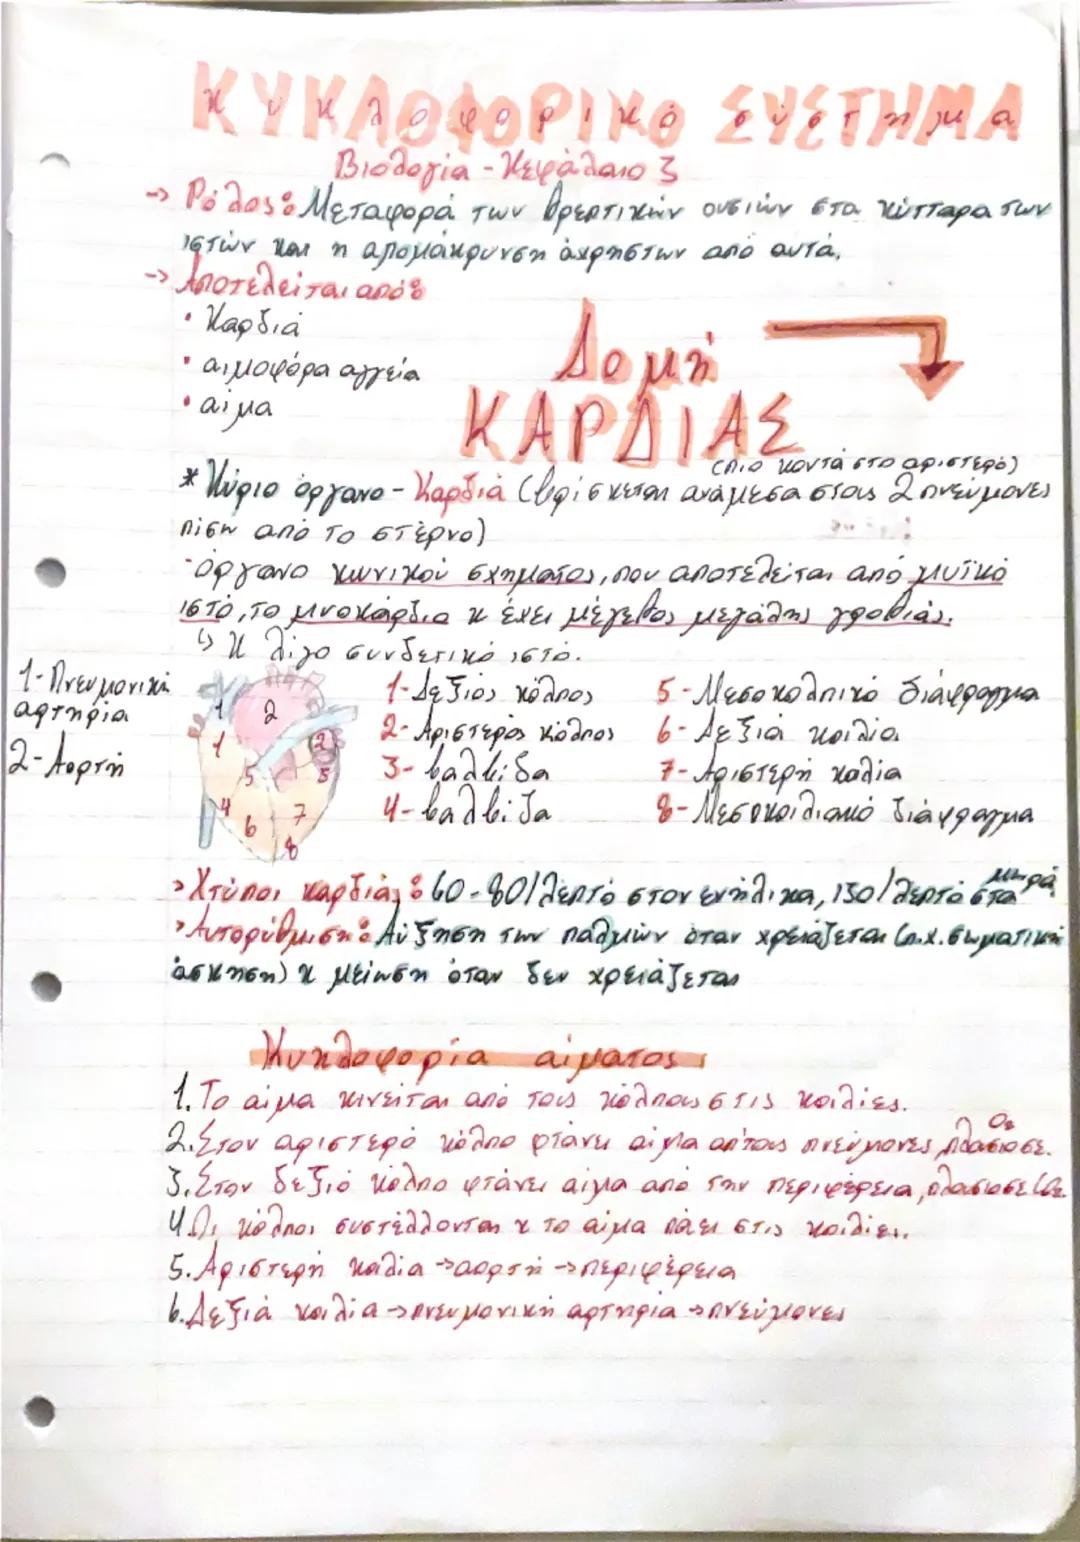 ΚΥΚΛΟΦΟΡΙΚΟ ΣΥΣΤΗΜΑ
κυκλοφορικό σύστημα
Βιολογία - Κεφάλαιο 3
-> Ρόλος: Μεταφορά των θρεπτικών ουσιών στα κύτταρα των
ιστών και η απομάκρυνση άχρηστων από αυτά.
-> Αποτελείται από:
• Καρδιά
• αιμοφόρα αγγεία
• αίμα
Δομή
ΚΑΡΔΙΑΣ
(πιο κοντά στο αριστερό)
* Κύριο όργανο - Καρδιά (βρίσκεται ανάμεσα στους 2 πνεύμονες
πίσω από το στέρνο)
- όργανο κωνικού σχήματος, που αποτελείται από μυϊκό
ιστό, το μυοκάρδιο κ έχει μέγεθος μεγάλης γροθιάς.
↳ κ λίγο συνδετικό ιστό.
1-Πνευμονική
αρτηρία
2-Αορτή
1 2 1 2 5 3 4 6 7 8
1-Δεξιός κόλπος
2-Αριστερός κόλπος
3-βαλβίδα
4-βαλβίδα
5-Μεσοκολπικό διάφραγμα
6-Δεξιά κοιλία
7-Αριστερή κολία
8-Μεσοκοιλιακό διάφραγμα
> Χτύποι καρδιάς: 60-80/λεπτό στον ενήλικα, 130/λεπτό στα μικρά
> Αυτορύθμιση: Αύξηση των παλμών όταν χρειάζεται (π.χ. σωματική
άσκηση) κ μείωση όταν δεν χρειάζεται
Κυκλοφορία αίματος
1. Το αίμα κινείται από τους κόλπους στις κοιλίες.
2. Στον αριστερό κόλπο φτάνει αίμα απ'τους πνεύμονες, πλούσιο σε O₂.
3. Στον δεξιό κόλπο φτάνει αίμα από την περιφέρεια, πλούσιο σε
4. Οι κόλποι συστέλλονται κ το αίμα πάει στις κοιλίες.
5. Αριστερή κοιλία -> αορτή -> περιφέρεια
6. Δεξιά κοιλία -> πνευμονική αρτηρία -> πνεύμονες